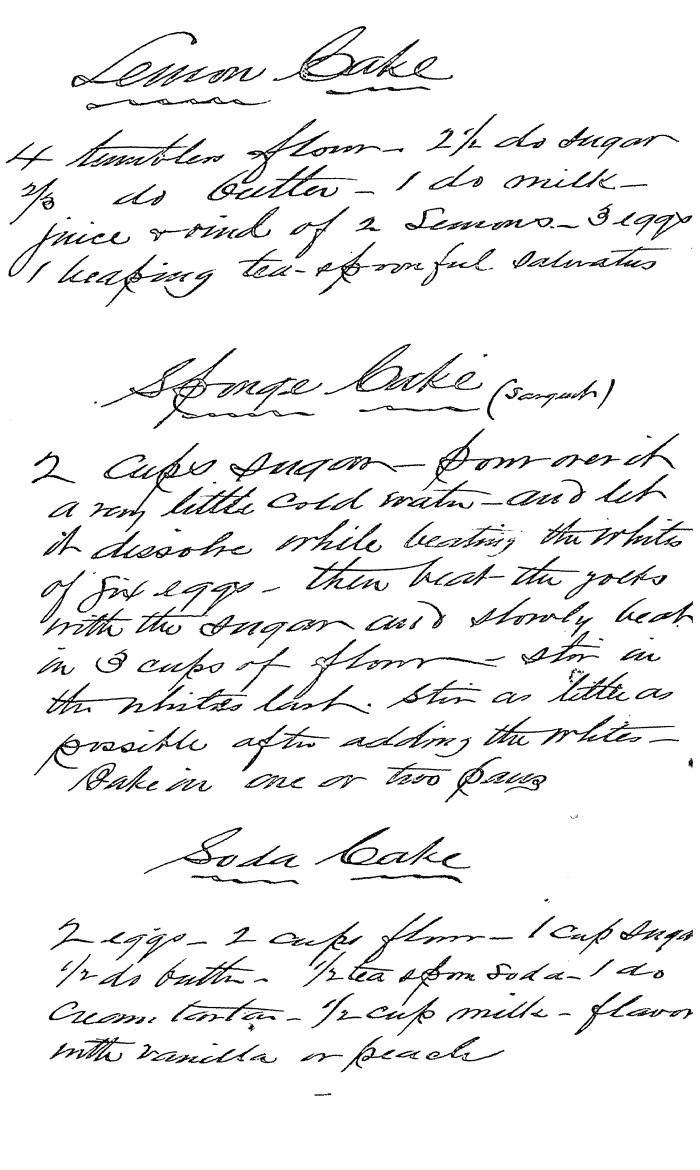 Lemon Cake
4 tumblers flour - 2 1/2 do sugar
2/3 do butter - 1 do milk -
juice & rind of 2 Lemons - 3 eggs
1 heaping tea-spoonful Saleratus
Sponge Cake
2 cups sugar - pour over it
a very little cold water - and let
it dissolve while beating the whites
of six eggs - then beat the yolks
with the sugar and slowly beat
in 3 cups of flour - stir in
the whites last. Stir as little as
possible after adding the whites -
Bake in one or two pans
Soda Cake
2 eggs - 2 cups flour - 1 cup sugar
1/2 do butter - 1/2 tea spoon Soda - 1 do
Cream tartar - 1/2 cup milk - flavor
with vanilla or peach